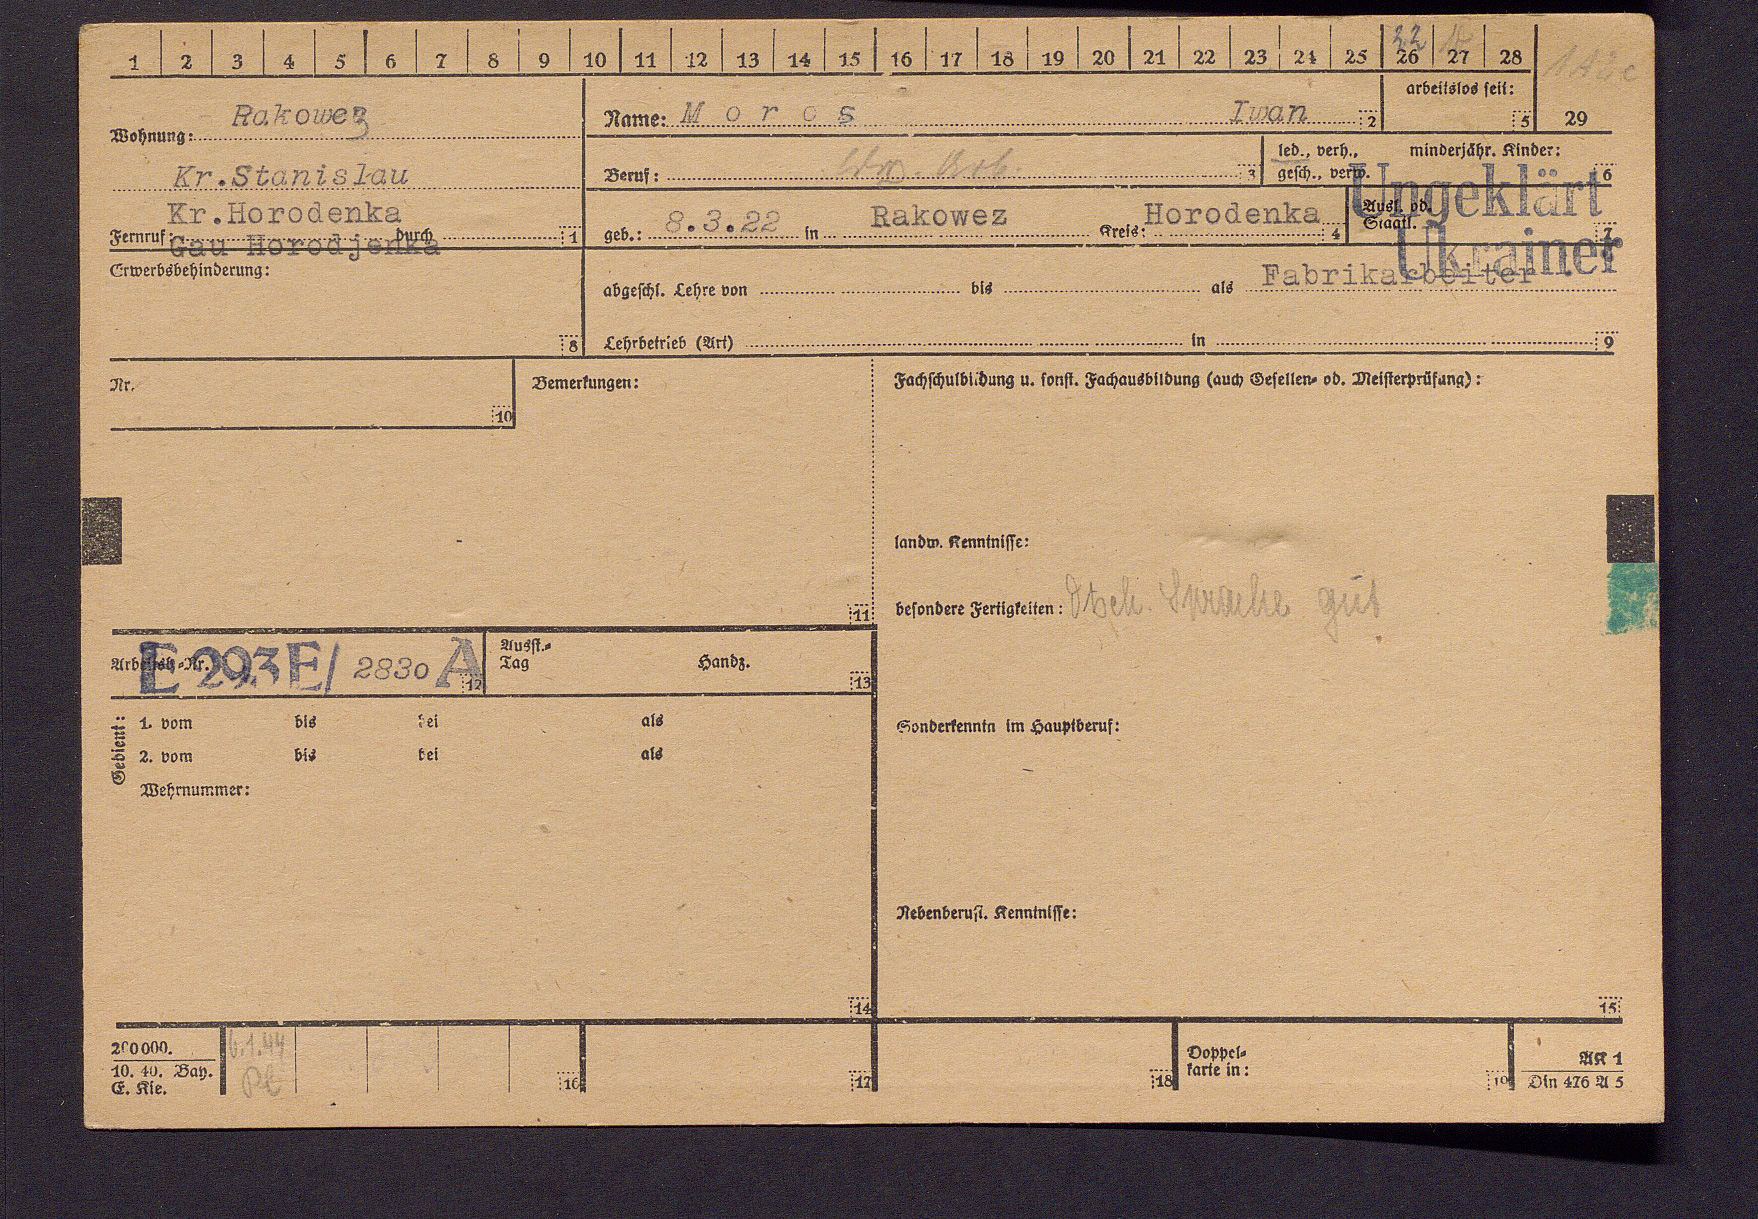 1 2 3 4 5 6 7 8 9 10 11 12 13 14 15 16 17 18 19 20 21 22 23 24 25 26 27 28
22
arbeitslos seit:
5
29
Wohnung: Rakowez
Kr.Stanislau
Kr.Horodenka
Fernruf: durch 1
Gau Horodjenka
Name: M o r o s Iwan 2
Beruf: Arb. 3
led., verh., gesch., verw.
minderjähr. Kinder:
6
geb.: 8.3.22 in Rakowez Kreis: Horodenka 4
Ausl. od. Staatl. 7
Ungeklärt
Ukrainer
Erwerbsbehinderung:
8
abgeschl. Lehre von bis als Fabrikarbeiter
Lehrbetrieb (Art) in 9
Nr.
10
Bemerkungen:
11
Fachschulbildung u. sonst. Fachausbildung (auch Gesellen- od. Meisterprüfung):
landw. Kenntnisse:
besondere Fertigkeiten: Dtsch. Sprache gut
Arbeitsb.-Nr. E 293E/ 2830 A 12
Ausst.-Tag Handz. 13
Gedient:
1. vom bis bei als
2. vom bis bei als
Wehrnummer:
14
Sonderkenntn im Hauptberuf:
Nebenberufl. Kenntnisse:
15
200000.
10. 40. Bay.
E. Kle.
6.1.44
16
17
18
Doppel-
karte in:
19
AK 1
Din 476 A 5